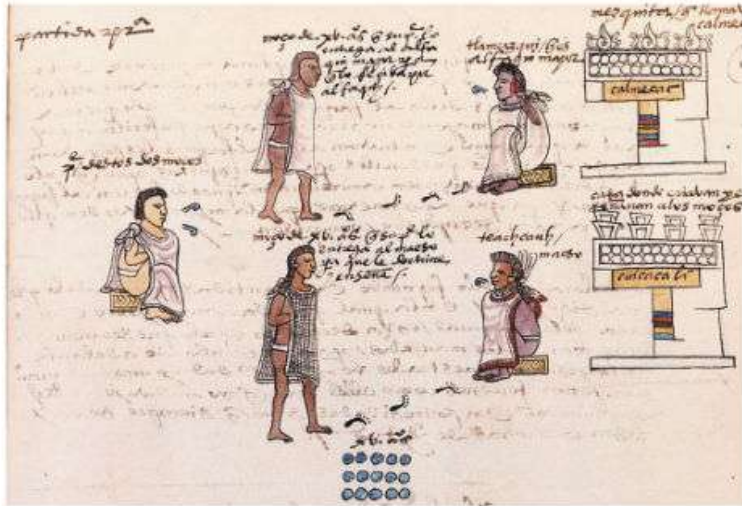 partida 2 pr^a
moço de .xv. aºs q su p^e lo
entrega al alfa
qui mayor
alfaqui /
tlamazqui / q es
alfaqui mayor
mezquita / q se llamav
calmecac
calmecac
p^e destos dos moços
moço de xv. aºs q su p^e lo
entrega al maeso
pa que le doctrine
y enseñe /
teachcauh /
maeso
casa donde criavan y e
señavan a los moços
cuicacali
xv. aºs